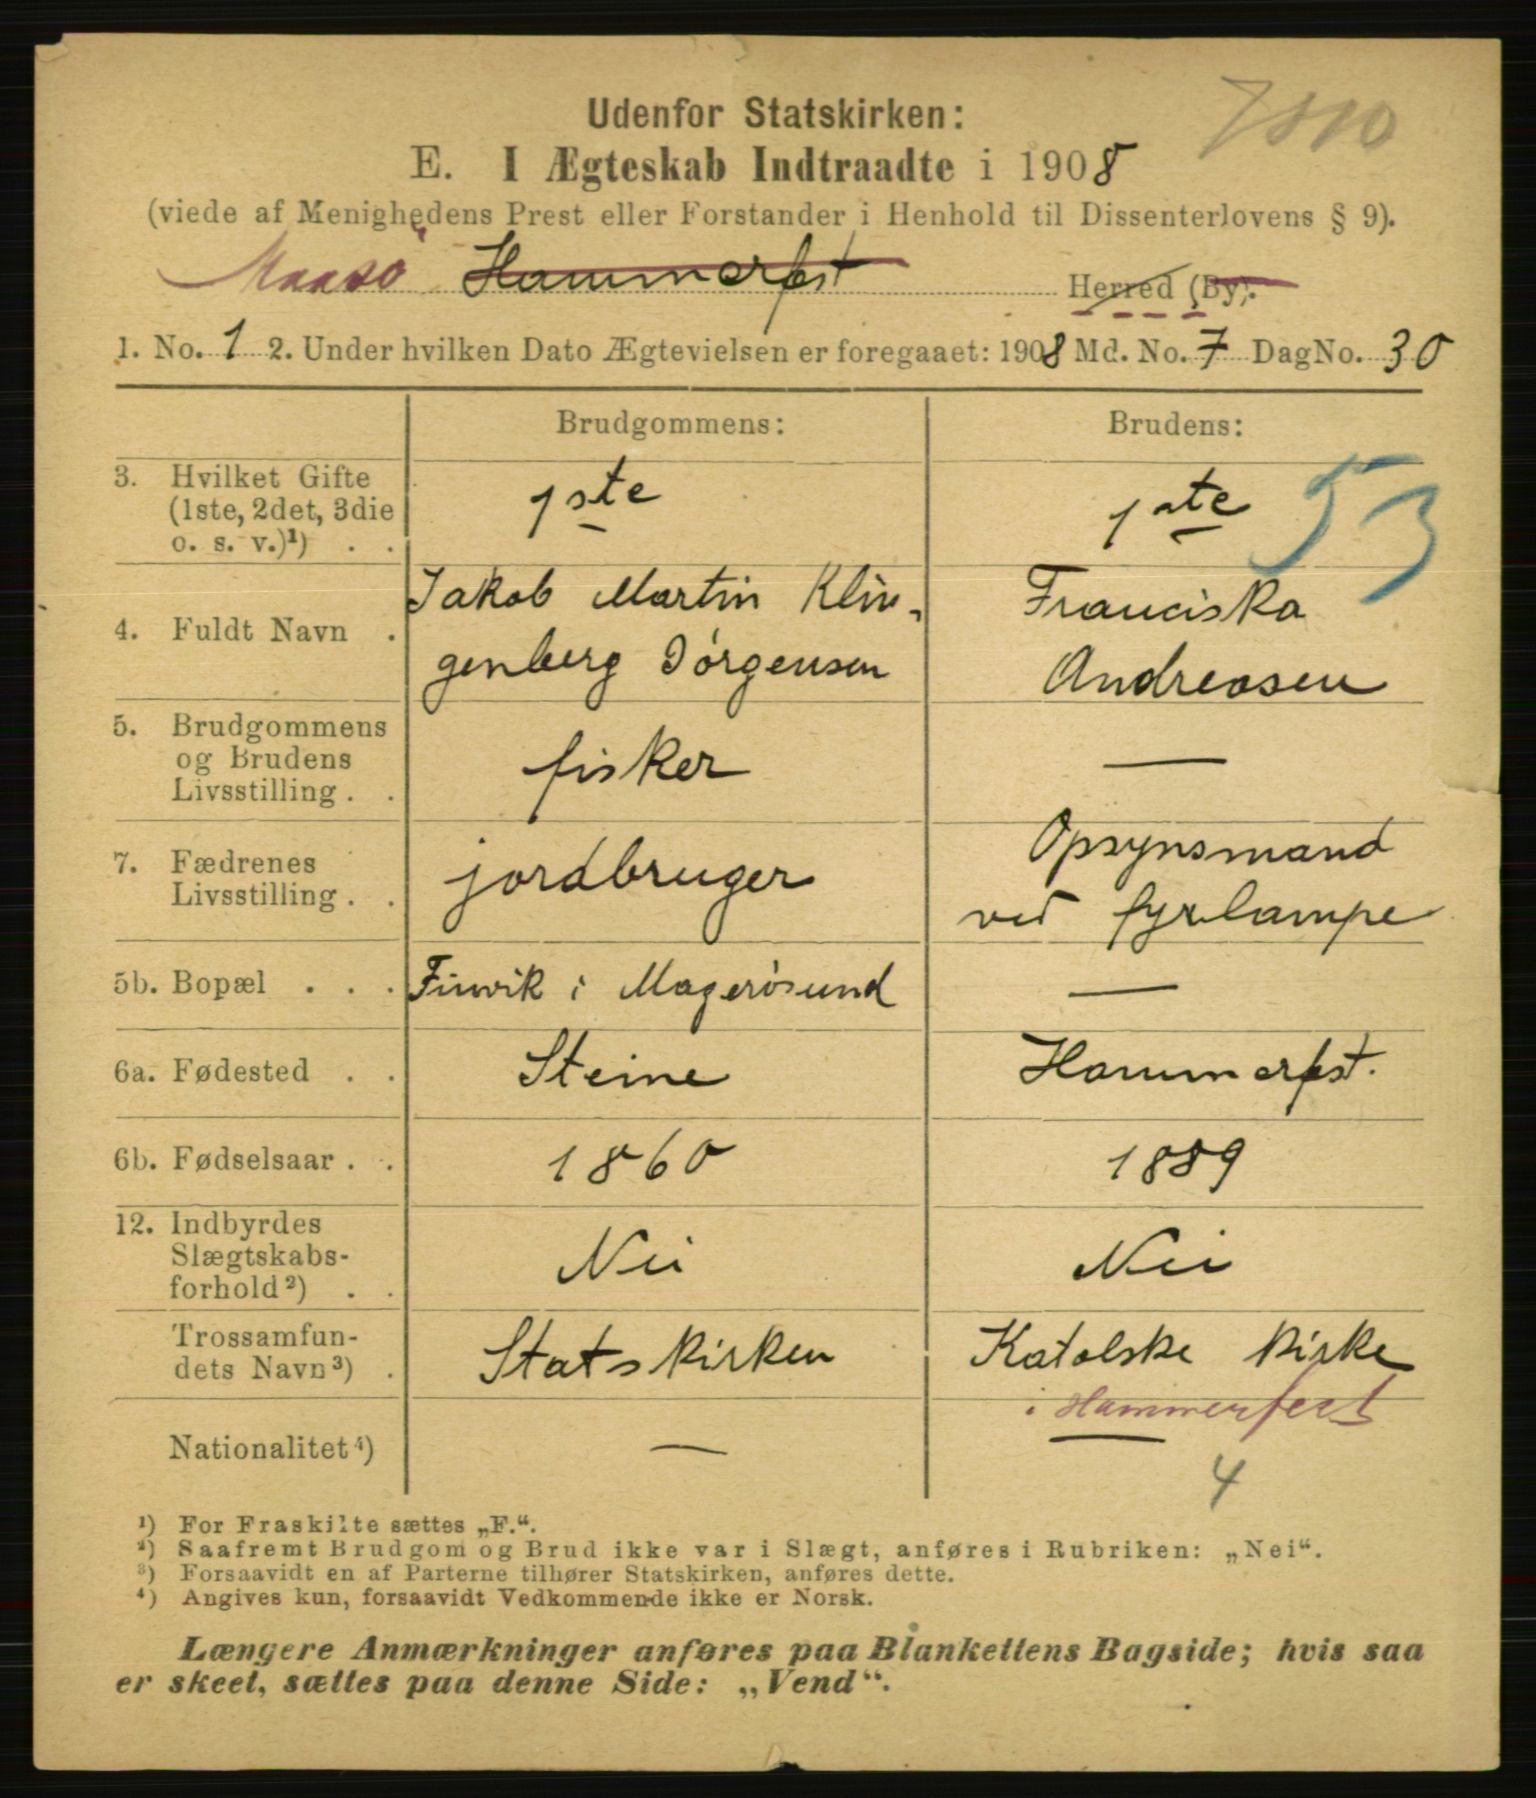 Udenfor Statskirken:
E. I Ægteskab Indtraadte i 1908
(viede af Menighedens Prest eller Forstander i Henhold til Dissenterlovens § 9).
Maasø Hammerfest Herred (By).
1. No. 1 2. Under hvilken Dato Ægtevielsen er foregaaet: 1908 Md. No. 7 Dag No. 30
Brudgommens: Brudens:
3. Hvilket Gifte
(1ste, 2det, 3die
o. s. v.)¹) . .
1ste 1ste
53
4. Fuldt Navn .
Jakob Martin Klin-
genberg Jörgensen
Franciska
Andreasen
5. Brudgommens
og Brudens
Livsstilling . .
fisker —
7. Fædrenes
Livsstilling . .
jordbruger
Opsynsmand
ved fyrlampe
5b. Bopæl . . . Finvik i Magerösund —
6a. Fødested . . Steine Hammerfest.
6b. Fødselsaar . . 1860 1889
12. Indbyrdes
Slægtskabs-
forhold²) . .
Nei Nei
Trossamfun-
dets Navn³) .
Statskirken
Katolske Kirke
i Hammerfest
Nationalitet⁴) — —
4
¹) For Fraskilte sættes „F.“.
²) Saafremt Brudgom og Brud ikke var i Slægt, anføres i Rubriken: „Nei“.
³) Forsaavidt en af Parterne tilhører Statskirken, anføres dette.
⁴) Angives kun, forsaavidt Vedkommende ikke er Norsk.
Længere Anmærkninger anføres paa Blankettens Bagside; hvis saa
er skeet, sættes paa denne Side: „Vend“.